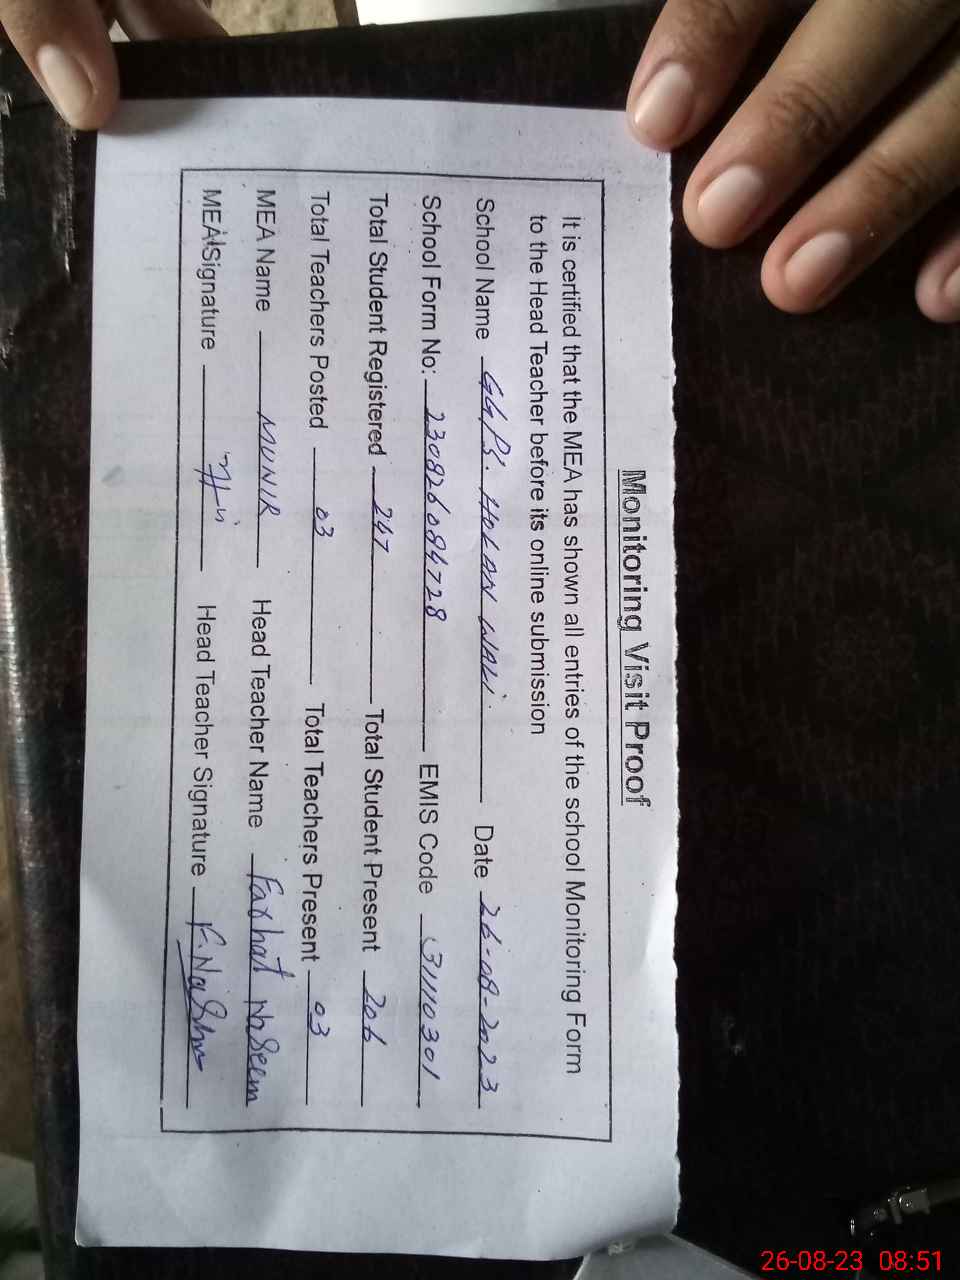 Monitoring Visit Proof
It is certified that the MEA has shown all entries of the school Monitoring Form
to the Head Teacher before its online submission
School Name GGPS. HOLAN WALI Date 26-08-2023
School Form No: 230826084728 EMIS Code 31110301
Total Student Registered 247 Total Student Present 206
Total Teachers Posted 03 Total Teachers Present 03
MEA Name MUNIR Head Teacher Name Farhat Naseem
MEA Signature Head Teacher Signature
26-08-23 08:51